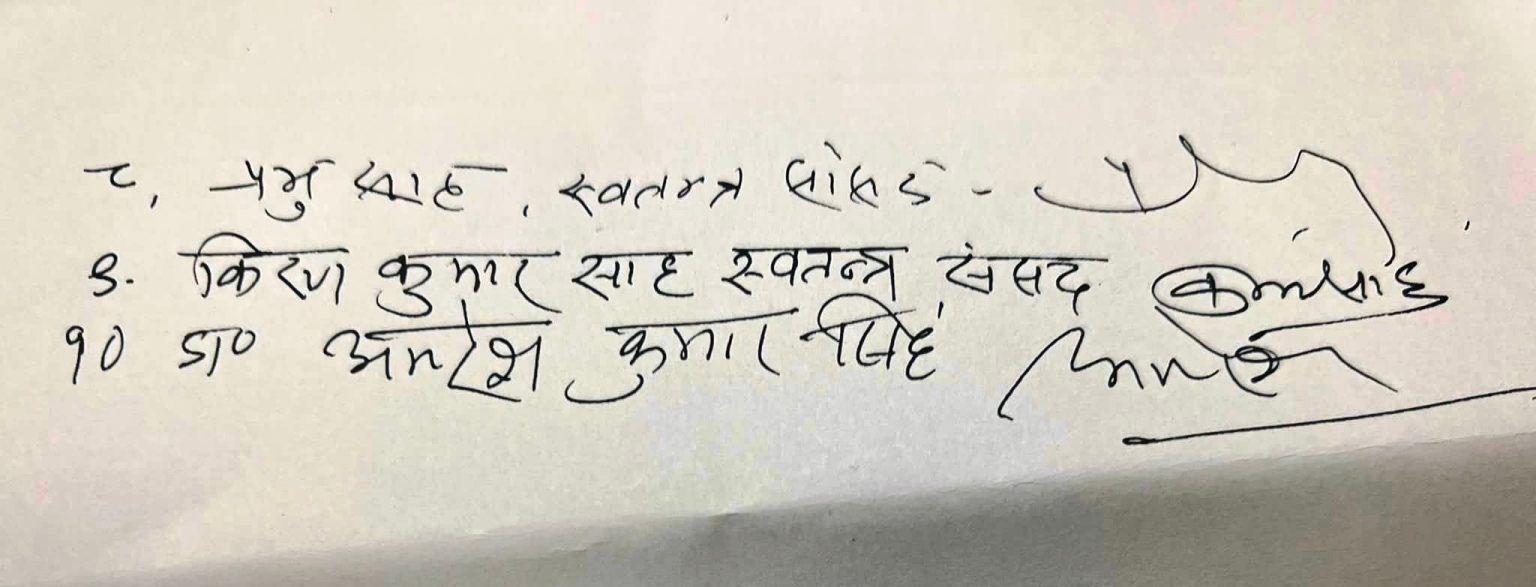 ८, प्रभु साह, स्वतन्त्र सांसद -
९. किरण कुमार साह स्वतन्त्र संसद
१० डा० अमरेश कुमार सिंह